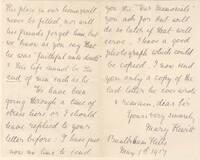 His place in our homes will
never be filled, nor will
his friends forget him but
we know as you say that
he was "faithful unto death"
& this life cannot be the
end of men such as he.
We have been
going through a time of
stress here or I should
have replied to your
letter before. I have just
now no time to send
you the "War Memorials"
you ask for but will
do so later if that will
serve. I have a good
photograph which could
be copied. I now send
you only a copy of the
last letter he ever wrote
& remain, dear Sir
Yours very sincerely,
Mary Hewitt
May 1st 1917